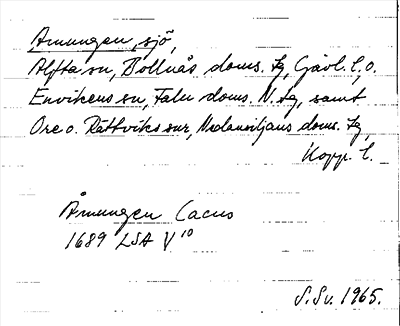 Amungen, sjö,
Alfta sn, Bollnäs doms. tg, Gävl. l., o.
Envikens sn, Falu doms. N. tg, samt
Ore o. Rättviks snr, Nedansiljans doms. tg,
Kopp. l.
Åmungen Lacus
1689 LSA V¹⁰
S.Sv. 1965.